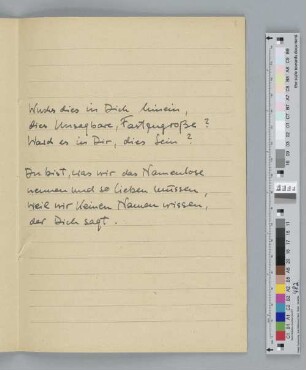 Wuchs dies in Dich hinein,
dies Unsagbare, Fastzugroße?
Ward es in Dir, dies Sein?
Du bist, was wir das Namenlose
nennen und so lieben müssen,
weil wir keinen Namen wissen,
der Dich sagt.